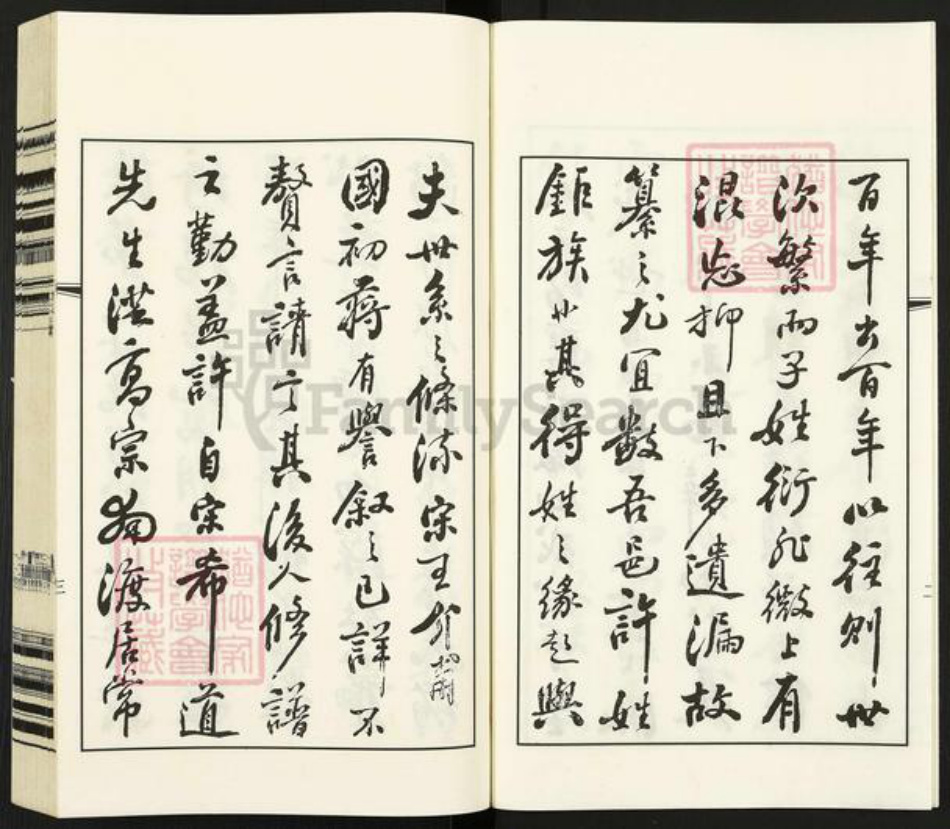 百年出百年以往則世
次繁而子姓衍非微上有
混忘抑且下多遺漏故
纂之尤宜數吾邑許姓
鉅族
其得姓之緣起與
夫世系之條流宋
國初蔣有譽叙之已詳不
贅言請言其後人修譜
之勤蓋許自宋希道
先生從高宗南渡居常
FamilySearch